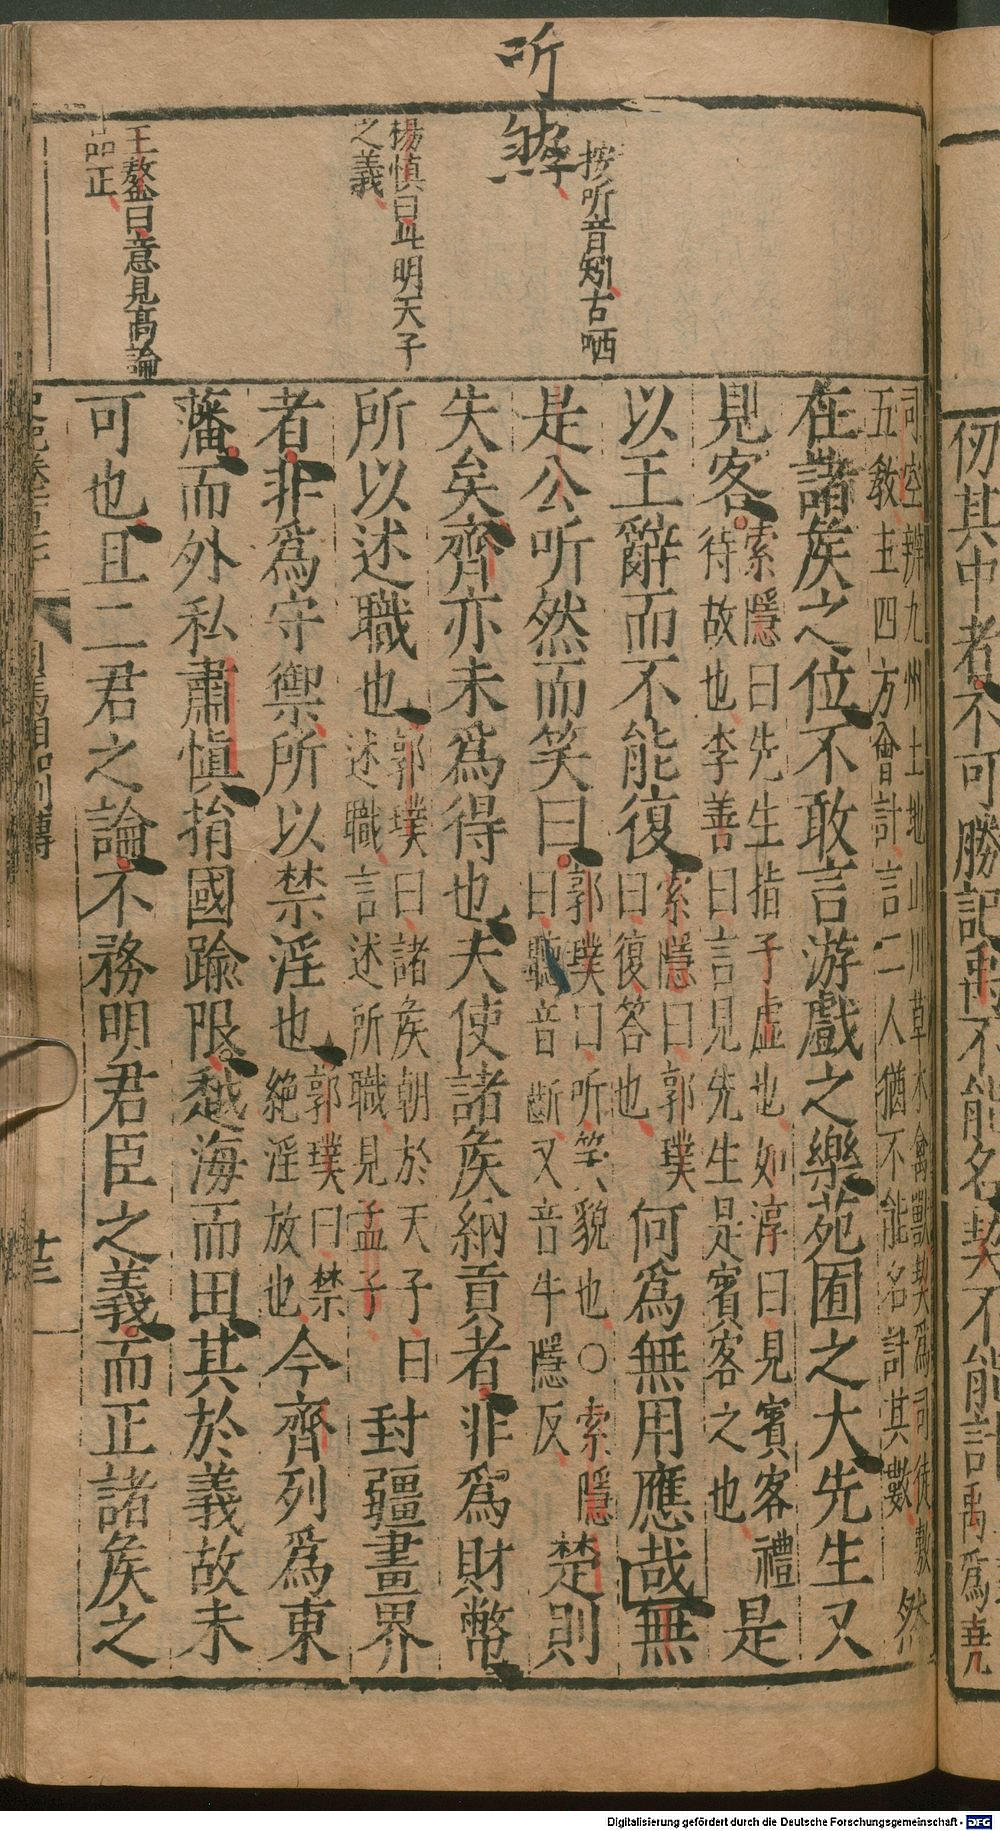 听然
按听音矧古哂
字
楊慎曰此明天子
之義
王鏊曰意見高論
品正
司空辨九州土地山川草木禽獸契爲司徒敷
五教主四方會計言二人猶不能名計其數
然
在諸矦之位不敢言游戲之樂苑囿之大先生又
見客
索隱曰先生指子虛也如淳曰見賓客禮
待故也李善曰言見先生是賓客之也
是
以王辭而不能復
索隱曰郭璞
曰復答也
何爲無用應哉無
是公听然而笑曰
郭璞曰听笑貌也○索隱
曰聽音斷又音牛隱反
楚則
失矣齊亦未爲得也夫使諸矦納貢者非爲財幣
所以述職也
郭璞曰諸矦朝於天子曰
述職言述所職見孟子
封疆畫界
者非爲守禦所以禁淫也
郭璞曰禁
絕淫放也
今齊列爲東
藩而外私肅慎捐國踰限越海而田其於義故未
可也且二君之論不務明君臣之義而正諸矦之
司馬相如列傳
廿三
仞其中者不可勝記禹不能名契不能計
禹爲堯
Digitalisierung gefördert durch die Deutsche Forschungsgemeinschaft - DFG